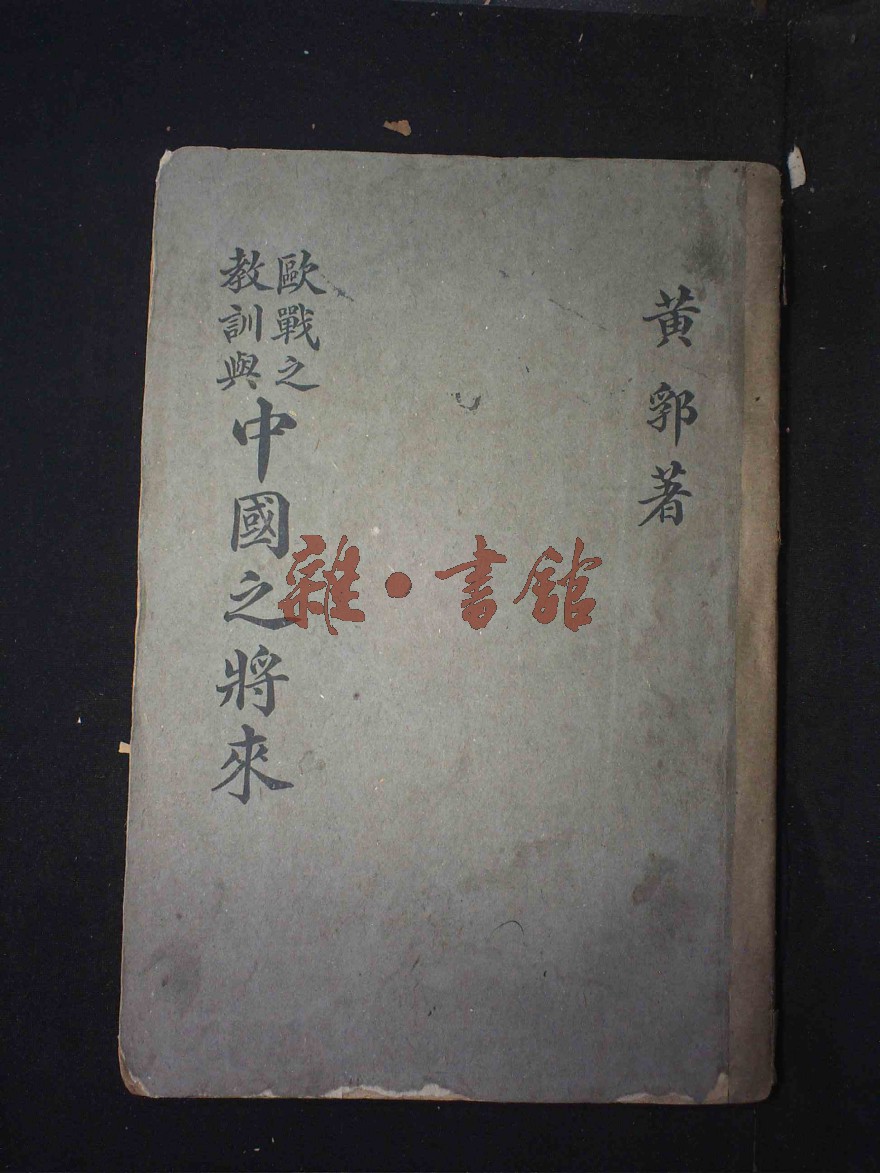 黄郛著
歐戰之
教訓與
中國之將來
雜·書館